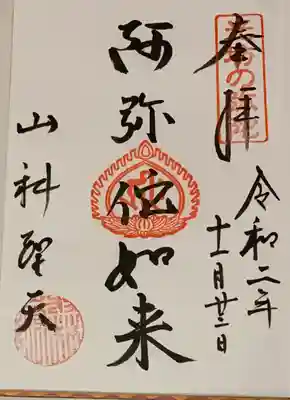 奉拝
令和二年
十一月廿二日
阿弥陀如来
山科聖天